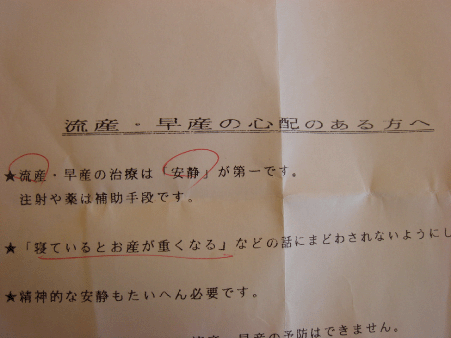 流産・早産の心配のある方へ
★流産・早産の治療は「安静」が第一です。
注射や薬は補助手段です。
★「寝ているとお産が重くなる」などの話にまどわされないようにし
★精神的な安静もたいへん必要です。
早産の予防はできません。